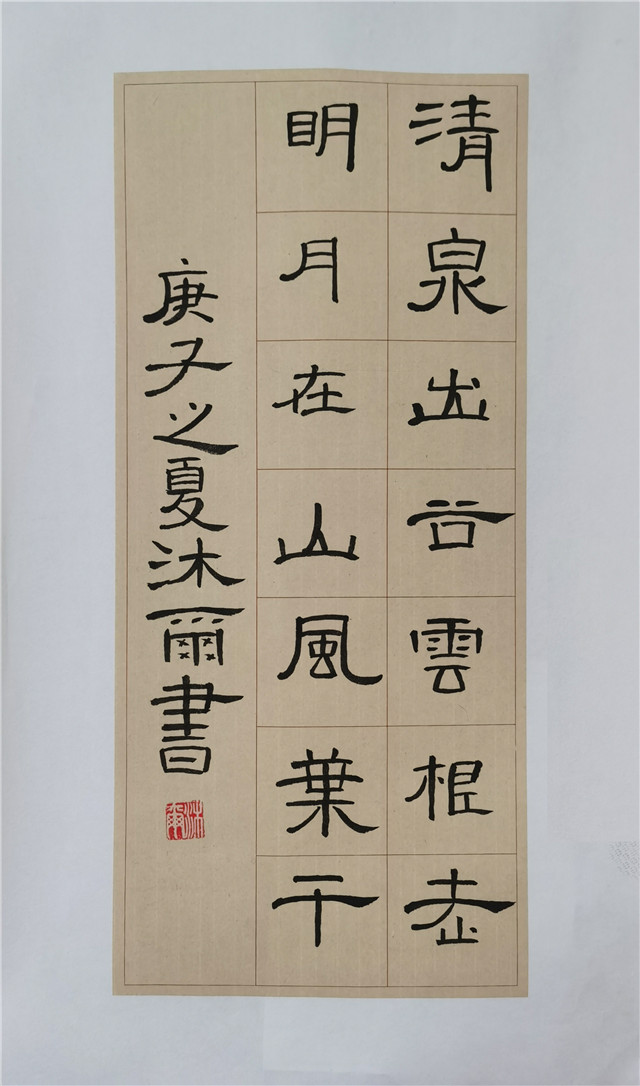 清泉出谷雲根走
明月在山風葉干
庚子之夏沐爾書
沐爾